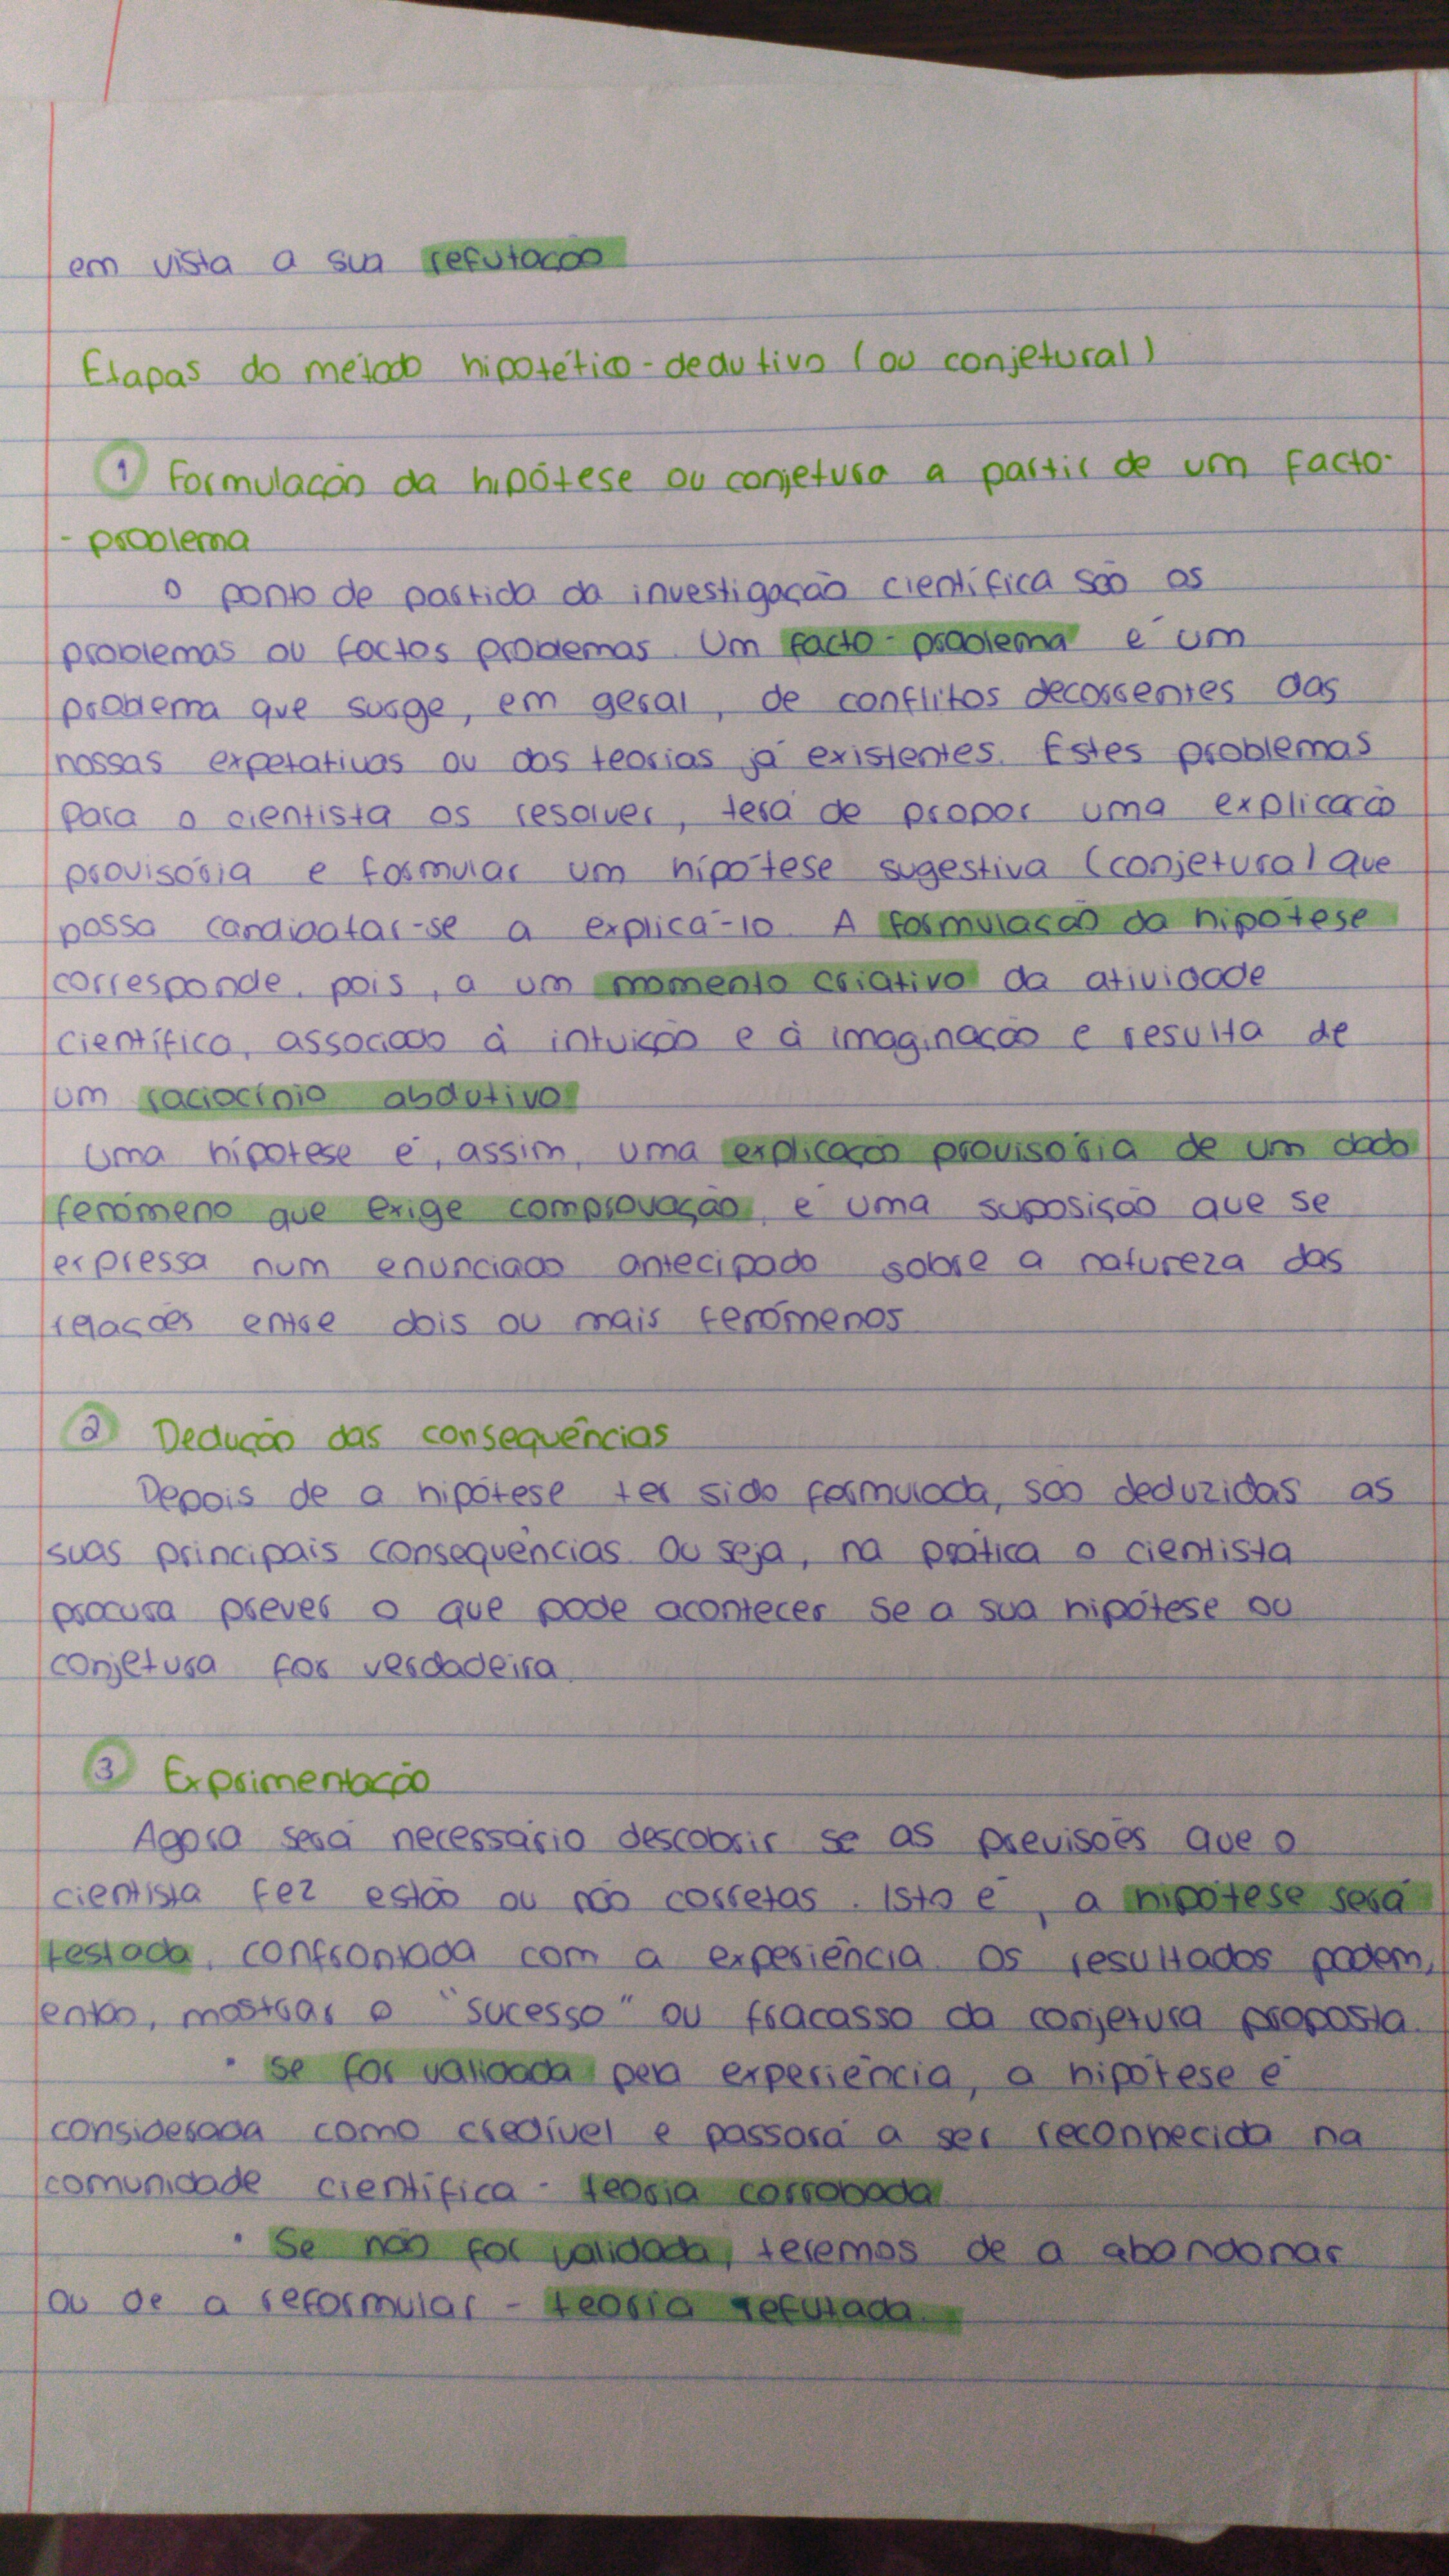 em vista a sua refutação
Etapas do método hipotético-dedutivo (ou conjetural)
1 Formulação da hipótese ou conjetura a partir de um facto-
- problema
O ponto de partida da investigação científica são os
problemas ou factos problemas. Um facto-problema é um
problema que surge, em geral, de conflitos decorrentes das
nossas expetativas ou das teorias já existentes. Estes problemas
para o cientista os resolver, terá de propor uma explicação
provisória e formular um hipótese sugestiva (conjetura) que
possa candidatar-se a explicá-lo. A formulação da hipótese
corresponde, pois, a um momento criativo da atividade
científica, associado à intuição e à imaginação e resulta de
um raciocínio abdutivo
Uma hipótese é, assim, uma explicação provisória de um dado
fenómeno que exige comprovação, é uma suposição que se
expressa num enunciado antecipado sobre a natureza das
relações entre dois ou mais fenómenos
2 Dedução das consequências
Depois de a hipótese ter sido formulada, são deduzidas as
suas principais consequências. Ou seja, na prática o cientista
procura prever o que pode acontecer se a sua hipótese ou
conjetura for verdadeira.
3 Exprimentação
Agora será necessário descobrir se as previsões que o
cientista fez estão ou não corretas. Isto é, a hipótese será
testada, confrontada com a experiência. Os resultados podem,
então, mostrar o "sucesso" ou fracasso da conjetura proposta.
• Se for validada pela experiência, a hipótese é
considerada como credível e passará a ser reconhecida na
comunidade científica - teoria corrobada
• Se não for validada, teremos de a abandonar
ou de a reformular - teoria refutada.